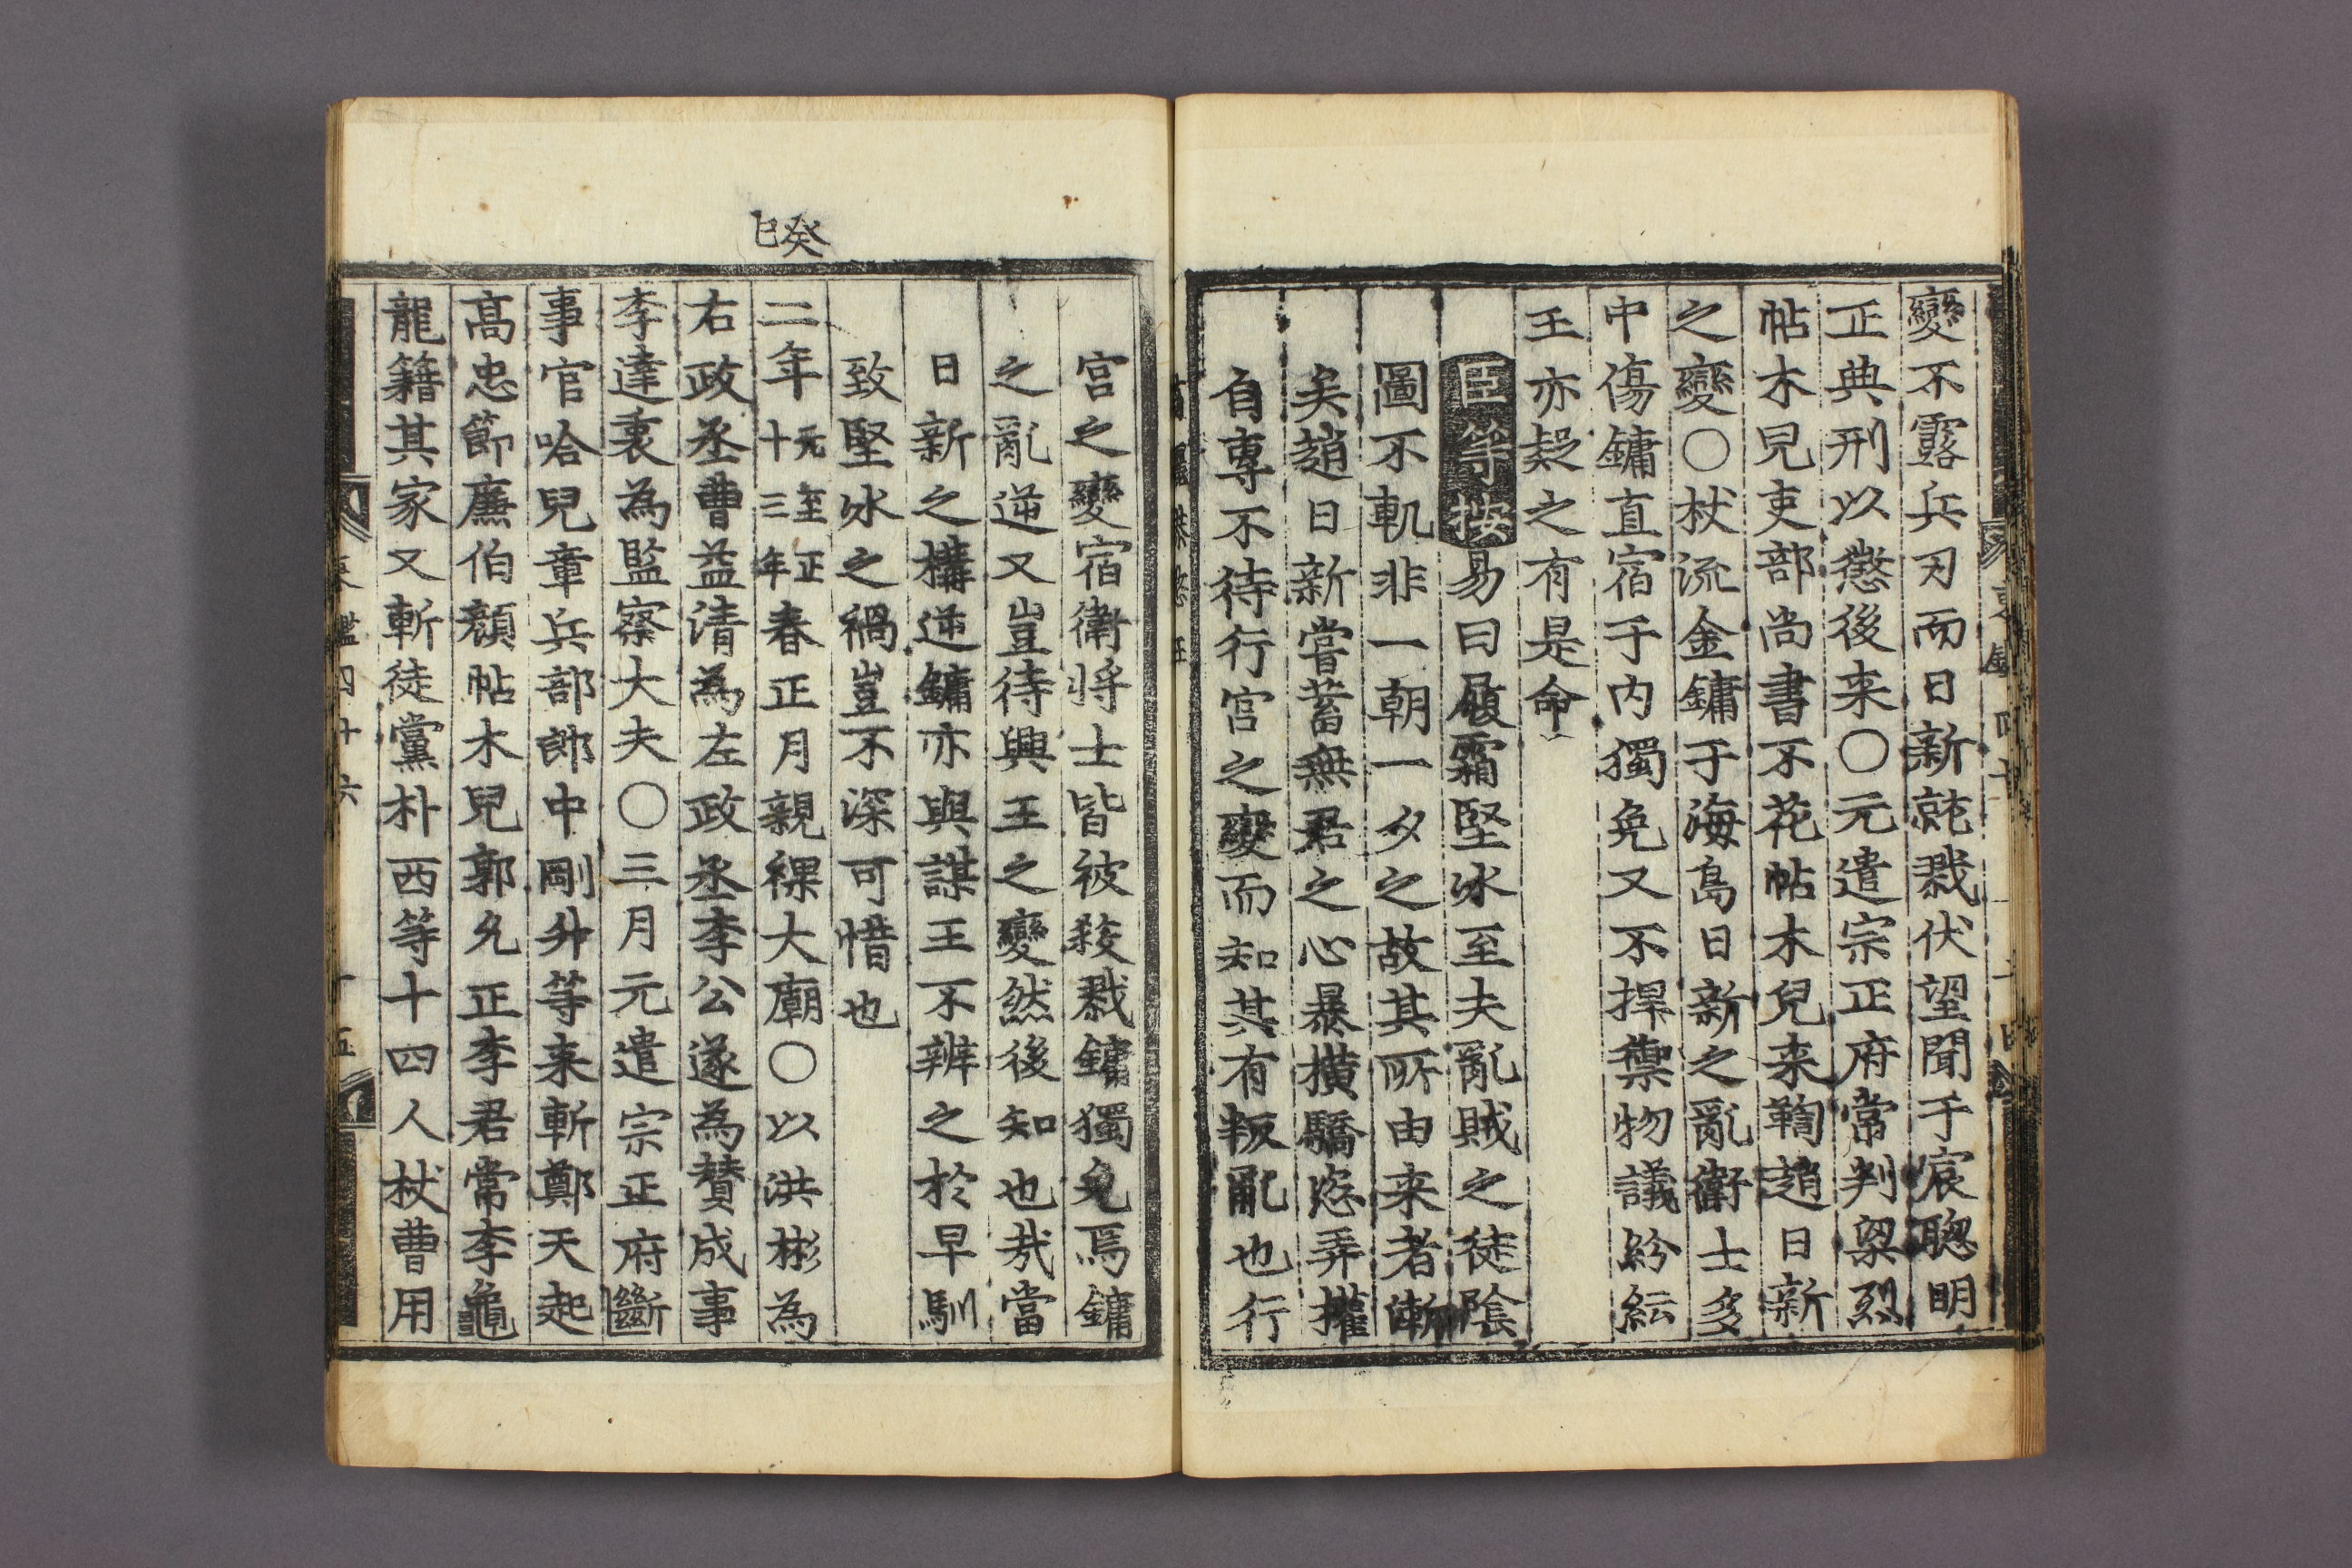 變不露兵刃而日新就戮伏望聞于宸聰明
正典刑以懲後来〇元遣宗正府常判梁烈
帖木兒吏部尚書不花帖木兒来鞫趙日新
之變〇杖流金鏞于海島日新之亂衛士多
中傷鏞直宿于內獨免又不捍禦物議紛紜
王亦疑之有是命
臣等按易曰履霜堅冰至夫亂賊之徒陰
圖不軌非一朝一夕之故其所由来者漸
矣趙日新嘗蓄無君之心暴橫驕恣弄權
自專不待行宮之變而知其有叛亂也行
宮之變宿衛將士皆被殺戮鏞獨免焉鏞
之亂逆又豈待興王之變然後知也哉當
日新之構逆鏞亦與謀王不辨之於早馴
致堅冰之禍豈不深可惜也
癸巳
二年元至正十三年春正月親祼大廟〇以洪彬為
右政丞曹益清為左政丞李公遂為贊成事
李達衷為監察大夫〇三月元遣宗正府斷
事官哈兒章兵部郎中剛升等来斬鄭天起
高忠節廉伯顏帖木兒郭允正李君常李龜
龍籍其家又斬徒黨朴西等十四人杖曹用
東鑑四十六
十五